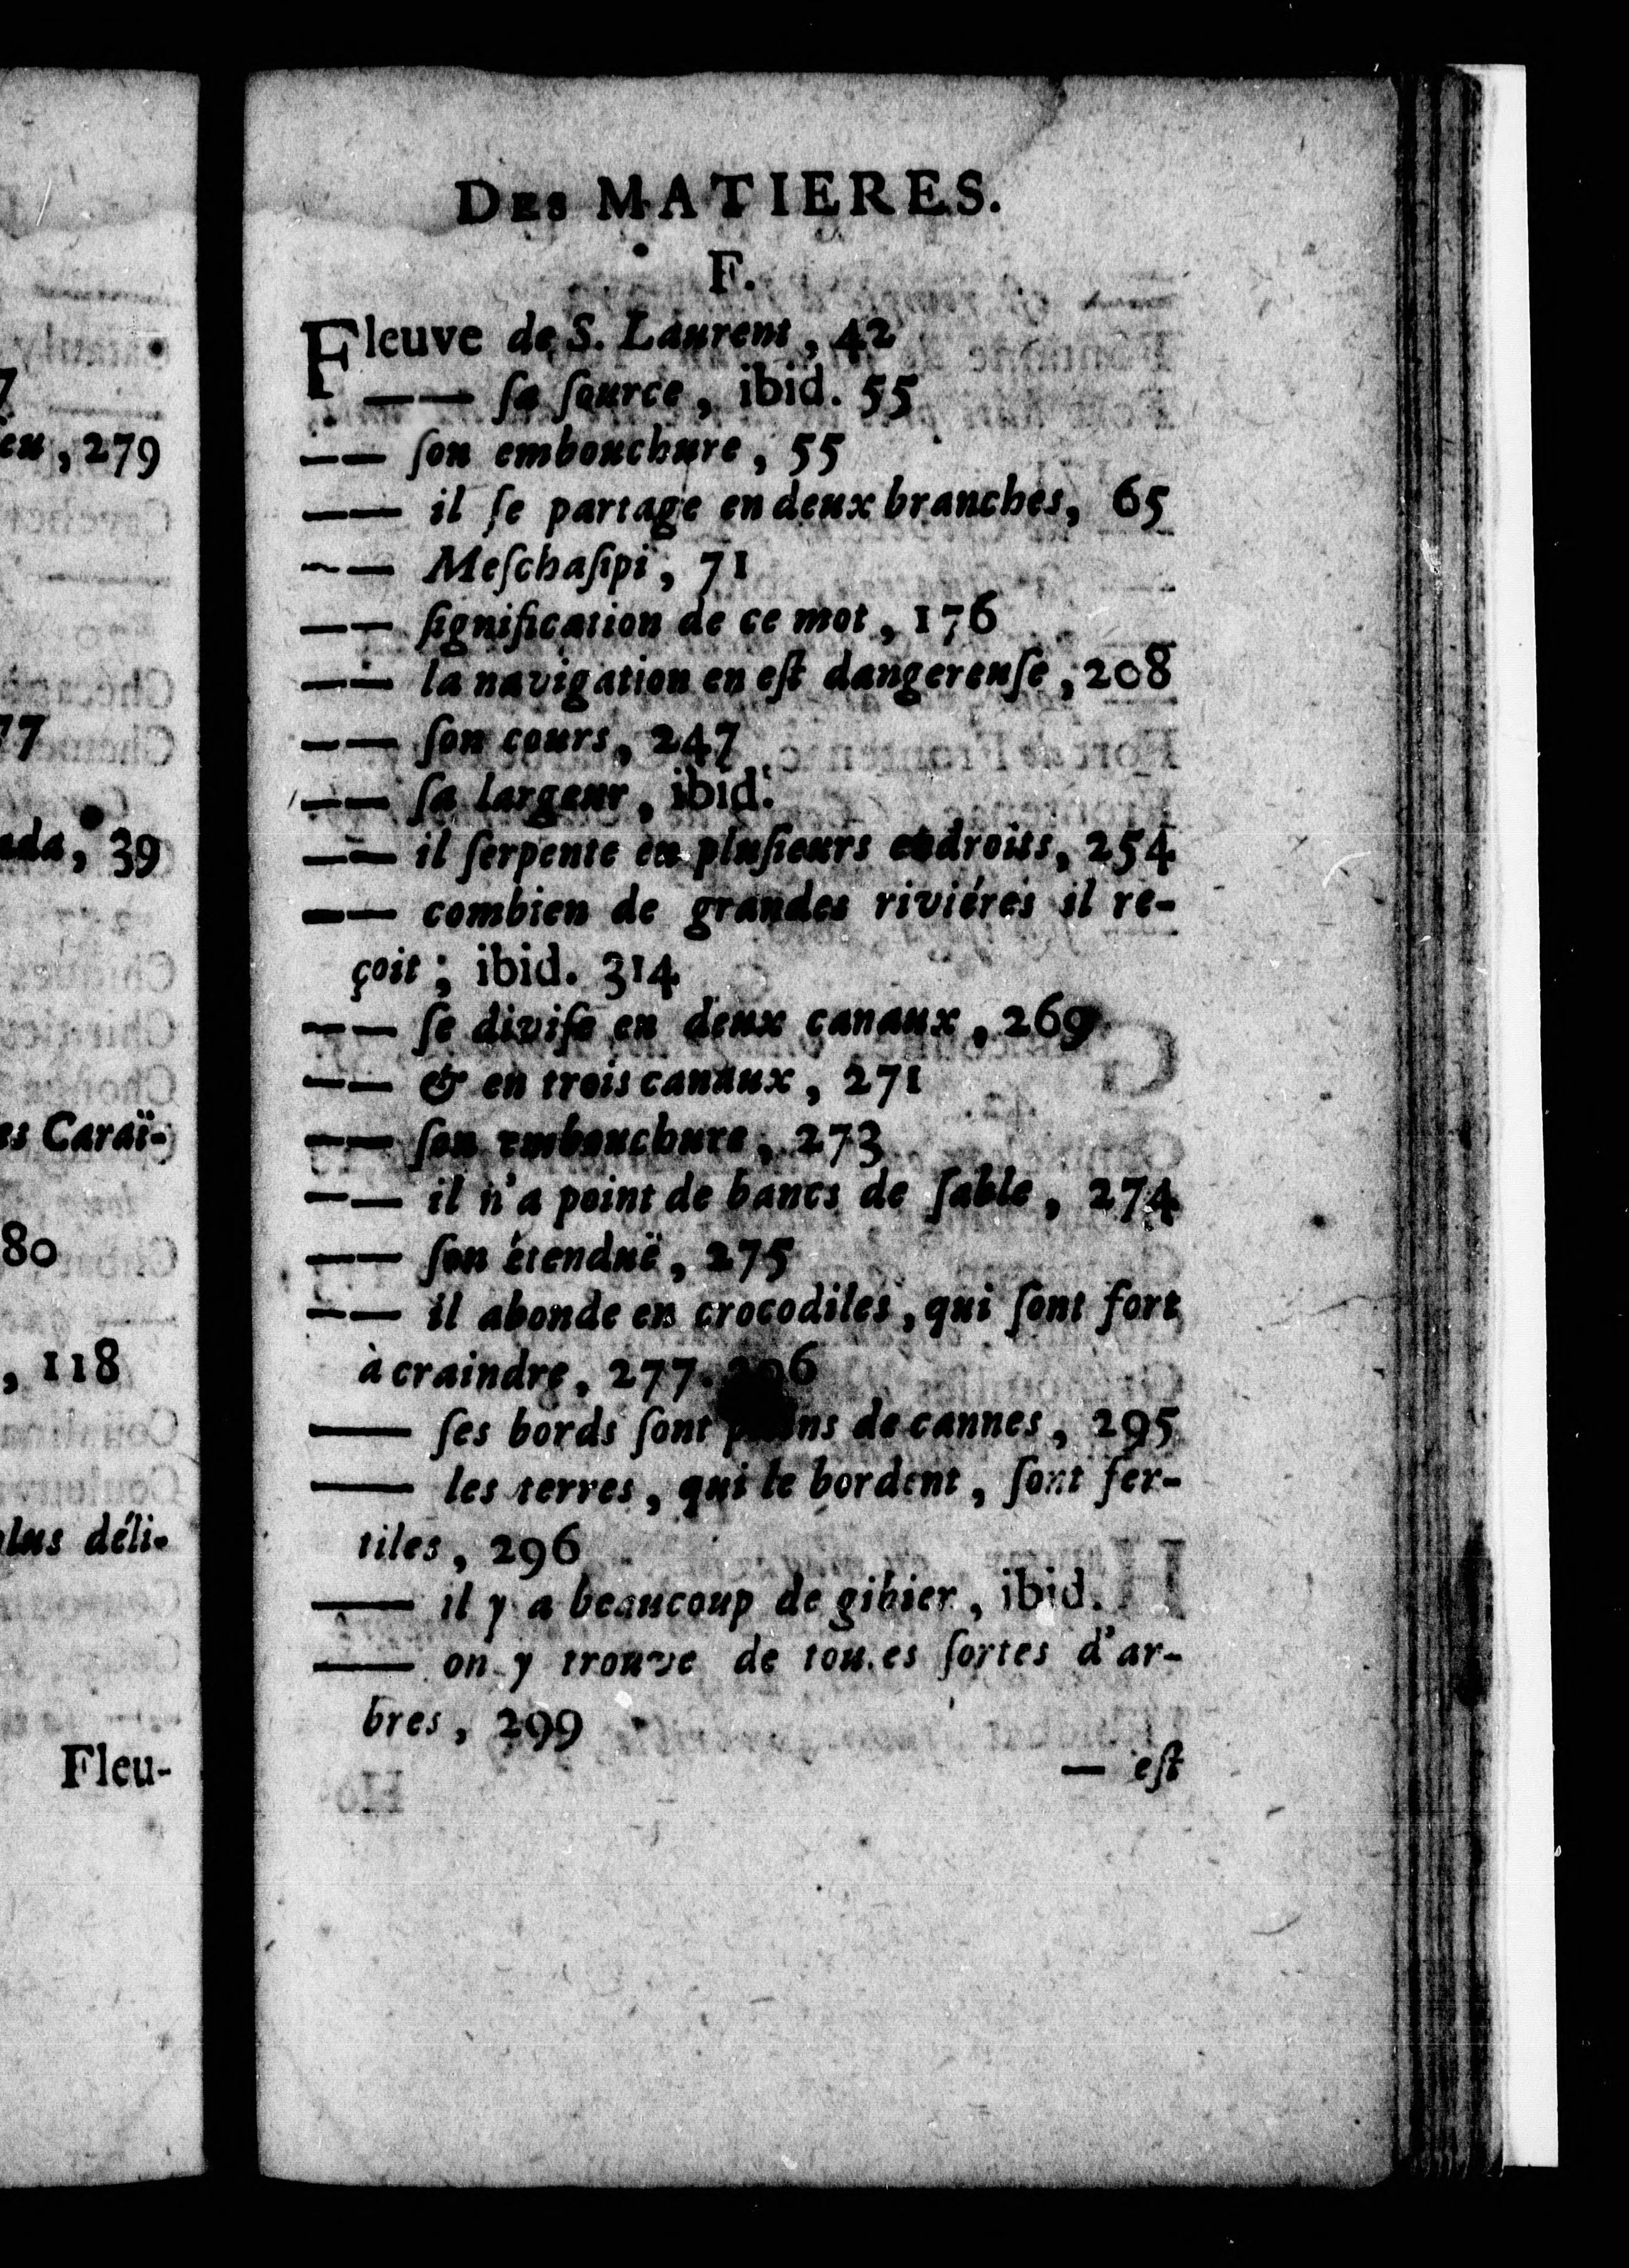 7
eu, 279
77
ada, 39
es Caraï-
80
, 118
lus déli-
Fleu-
DES MATIERES.
F.
Fleuve de S. Laurent, 42
—— ſa ſource, ibid. 55
—— ſon embouchure, 55
—— il ſe partage en deux branches, 65
—— Meſchaſipi, 71
—— ſignification de ce mot, 176
—— la navigation en eſt dangereuſe, 208
—— ſon cours, 247
—— ſa largeur, ibid.
—— il ſerpente en pluſieurs endroits, 254
—— combien de grandes riviéres il re-
çoit; ibid. 314
—— ſe diviſe en deux canaux, 269
—— & en trois canaux, 271
—— ſon embouchure, 273
—— il n'a point de bancs de ſable, 274
—— ſon étenduë, 275
—— il abonde en crocodiles, qui ſont fort
à craindre, 277.
—— ſes bords ſont de cannes, 295
—— les terres, qui le bordent, ſont fer-
tiles, 296
—— il y a beaucoup de gibier, ibid.
—— on y trouve de toutes ſortes d'ar-
bres, 299
— eſt